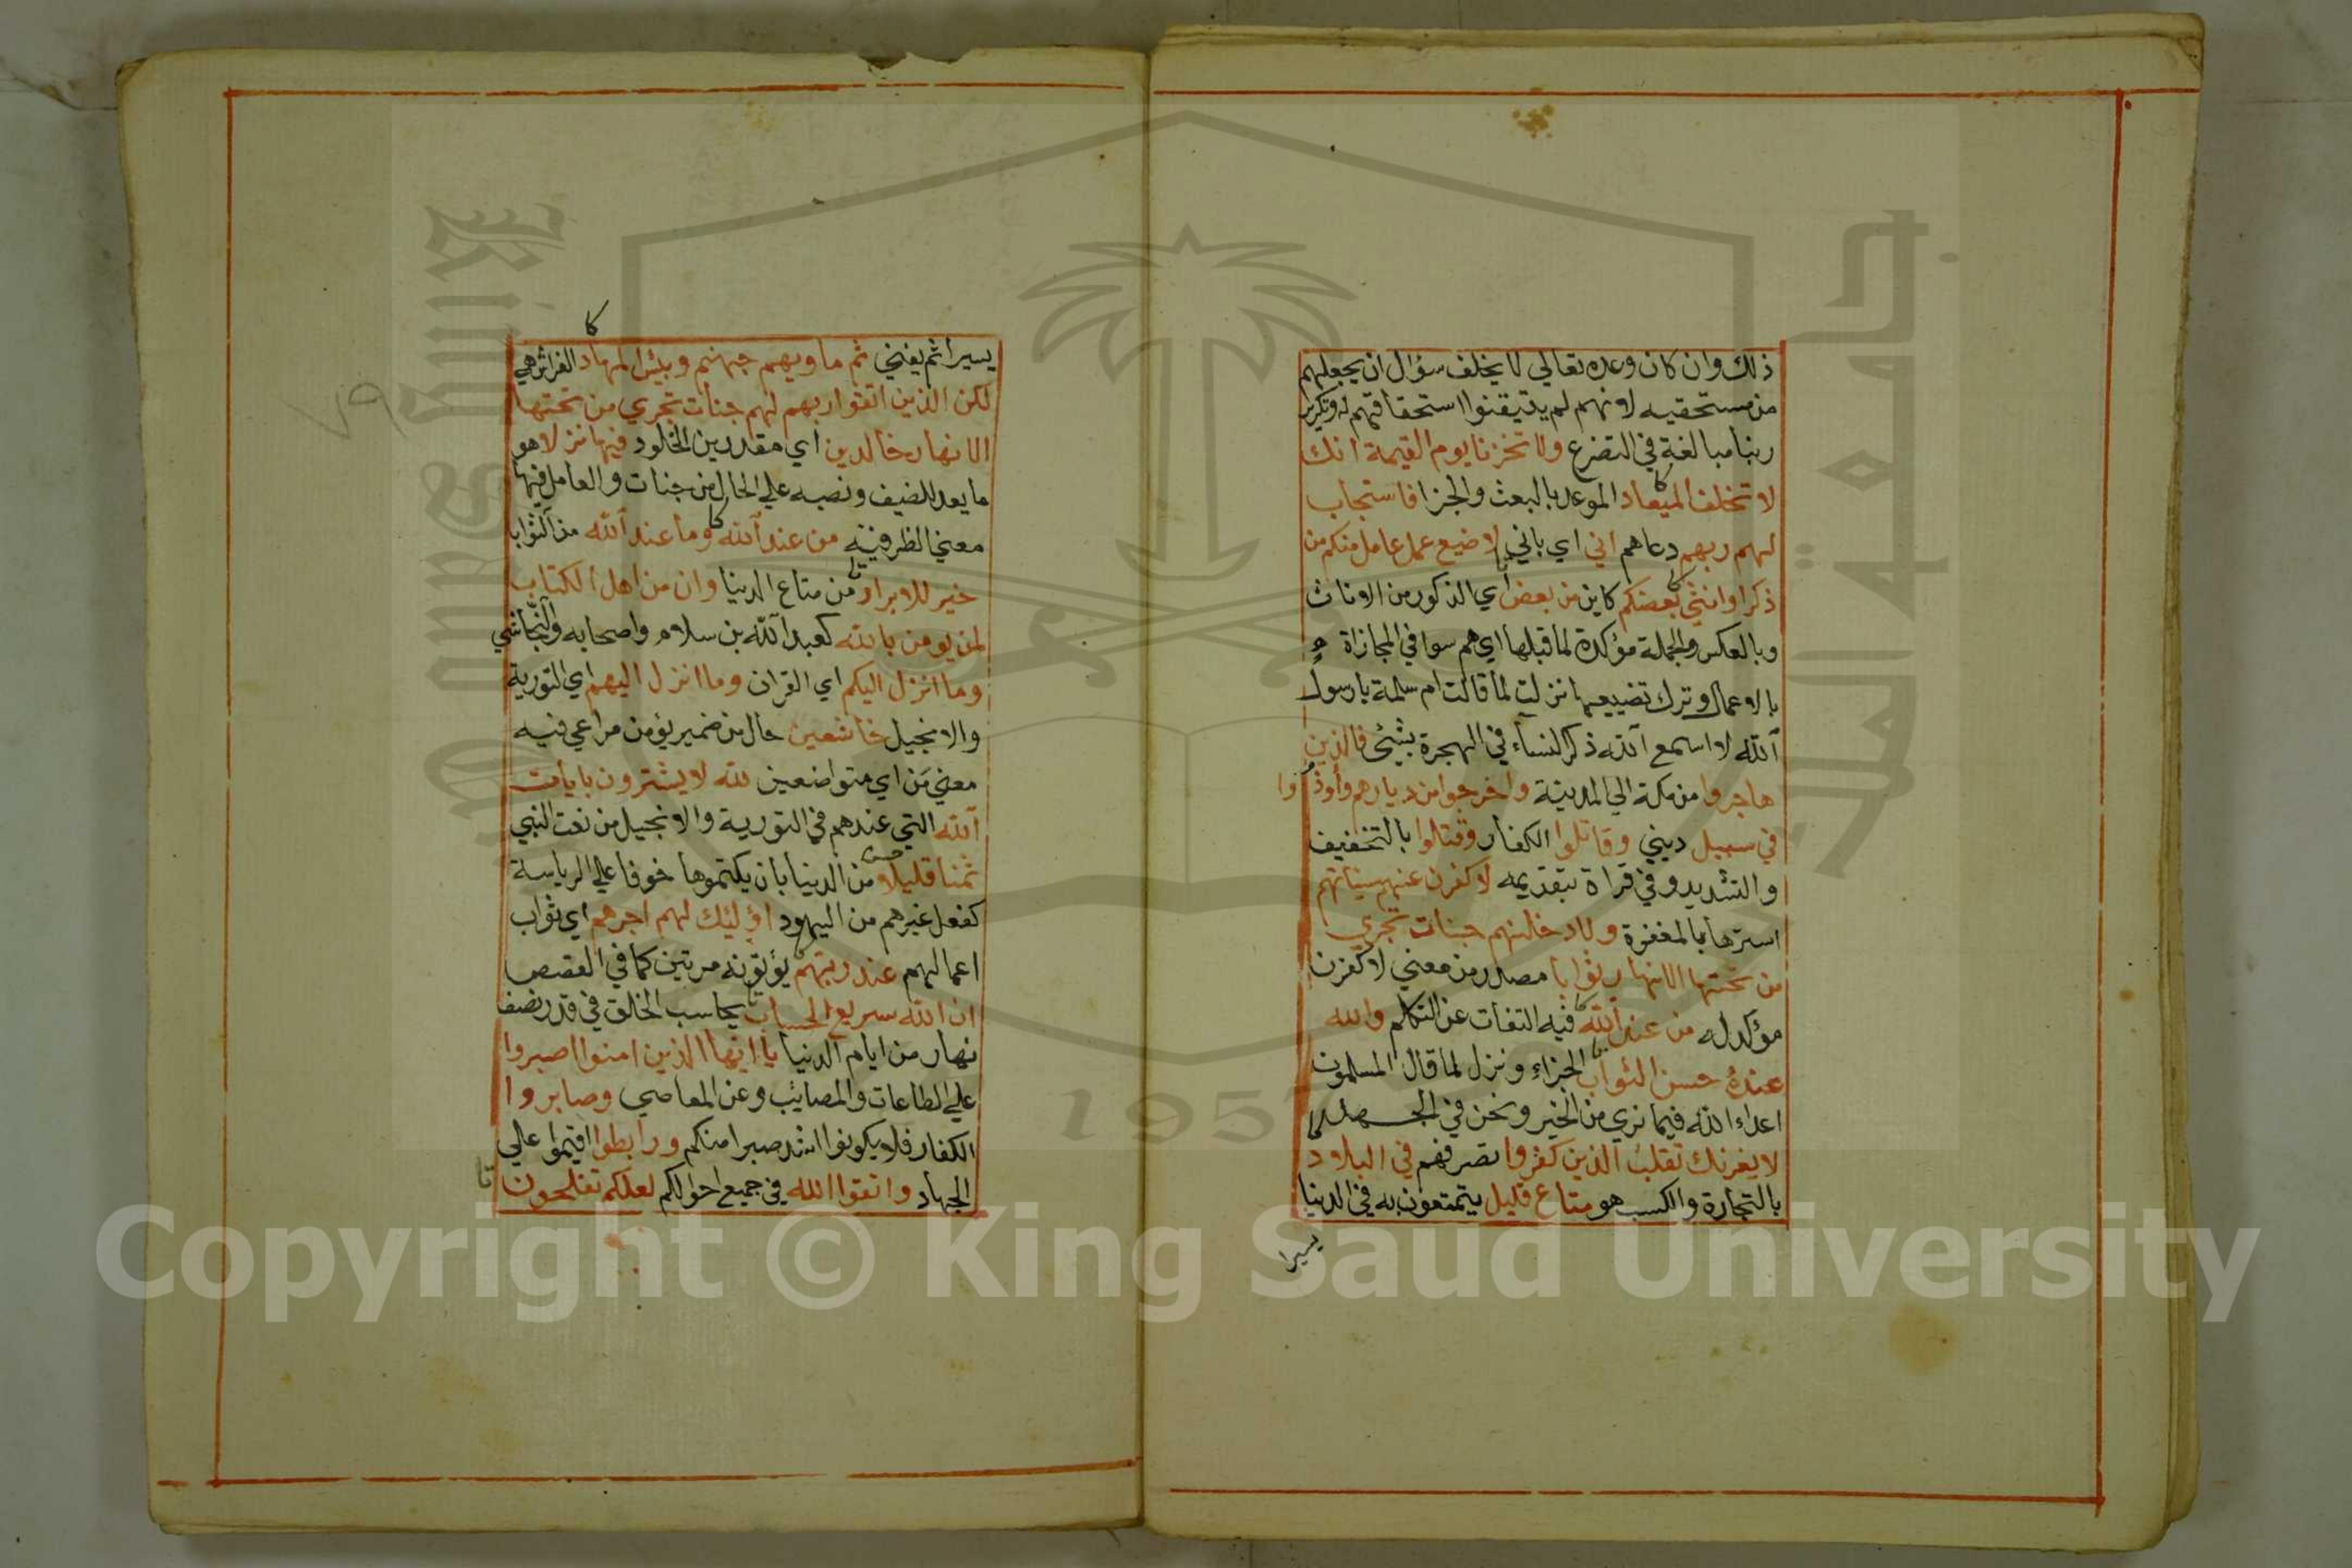 ذلك وان كان وعده تعالي لا يخلف سؤال ان يجعلهم
من مستحقيه لانهم لم يتيقنوا استحقاقهم له وتكرير
ربنا مبالغة في التضرع ولا تخزنا يوم القيمة انك
لا تخلف الميعاد الموعد بالبعث والجزا فاستجاب
لهم ربهم دعاهم اني اي باني لا ضيع عمل عامل منكم من
ذكر او انثي بعضكم كاين من بعض اي الذكور من الاناث
وبالعكس والجملة مؤكدة لما قبلها اي هم سوا في المجازاة
بالاعمال وترك تضييعها نزلت لما قالت ام سلمة يا رسول
الله لا اسمع الله ذكر النساء في الهجرة بشئ فالذين
هاجروا من مكة الي المدينة واخرجوا من ديارهم وأوذوا
في سبيل ديني وقاتلوا الكفار وقتلوا بالتخفيف
والتشديد وفي قراة بتقديمه لاكفرن عنهم سياتهم
استرها بالمغفرة ولادخلنهم جنات تجري
من تحتها الانهار ثوابا مصدر من معني لاكفرن
مؤكد له من عند الله فيه التفات عن التكلم والله
عنده حسن الثواب الجزاء ونزل لما قال المسلمون
اعداء الله فيما نري من الخير ونحن في الجهد
لا يغرنك تقلب الذين كفروا تصرفهم في البلاد
بالتجارة والكسب هو متاع قليل يتمتعون به في الدنيا
يسيرا
٧٩
يسيرا ثم يفني ثم ماويهم جهنم وبئس المهاد الفراش هي
لكن الذين اتقوا ربهم لهم جنات تجري من تحتها
الانهار خالدين اي مقدرين الخلود فيها نزلا هو
ما يعد للضيف ونصبه علي الحال من جنات والعامل فيها
معني الظرفية من عند الله وما عند الله من الثواب
خير للابرار من متاع الدنيا وان من اهل الكتاب
لمن يومن بالله كعبد الله بن سلام واصحابه والنجاشي
وما انزل اليكم اي القران وما انزل اليهم اي التورية
والانجيل خاشعين حال من ضمير يؤمن مراعي فيه
معني من اي متواضعين لله لا يشترون بايات
الله التي عندهم في التورية والانجيل من نعت النبي
ثمنا قليلا من الدنيا بان يكتموها خوفا علي الرياسة
كفعل غيرهم من اليهود اوليك لهم اجرهم اي ثواب
اعمالهم عند ربهم يؤتونه مرتين كما في القصص
ان الله سريع الحساب يحاسب الخلق في قدر نصف
نهار من ايام الدنيا يا ايها الذين امنوا اصبروا
علي الطاعات والمصائب وعن المعاصي وصابروا
الكفار فلا يكونوا اشد صبرا منكم ورابطوا اقيموا علي
الجهاد واتقوا الله في جميع احوالكم لعلكم تفلحون
جامعة الملك سعود
King Saud University
1957
Copyright © King Saud University